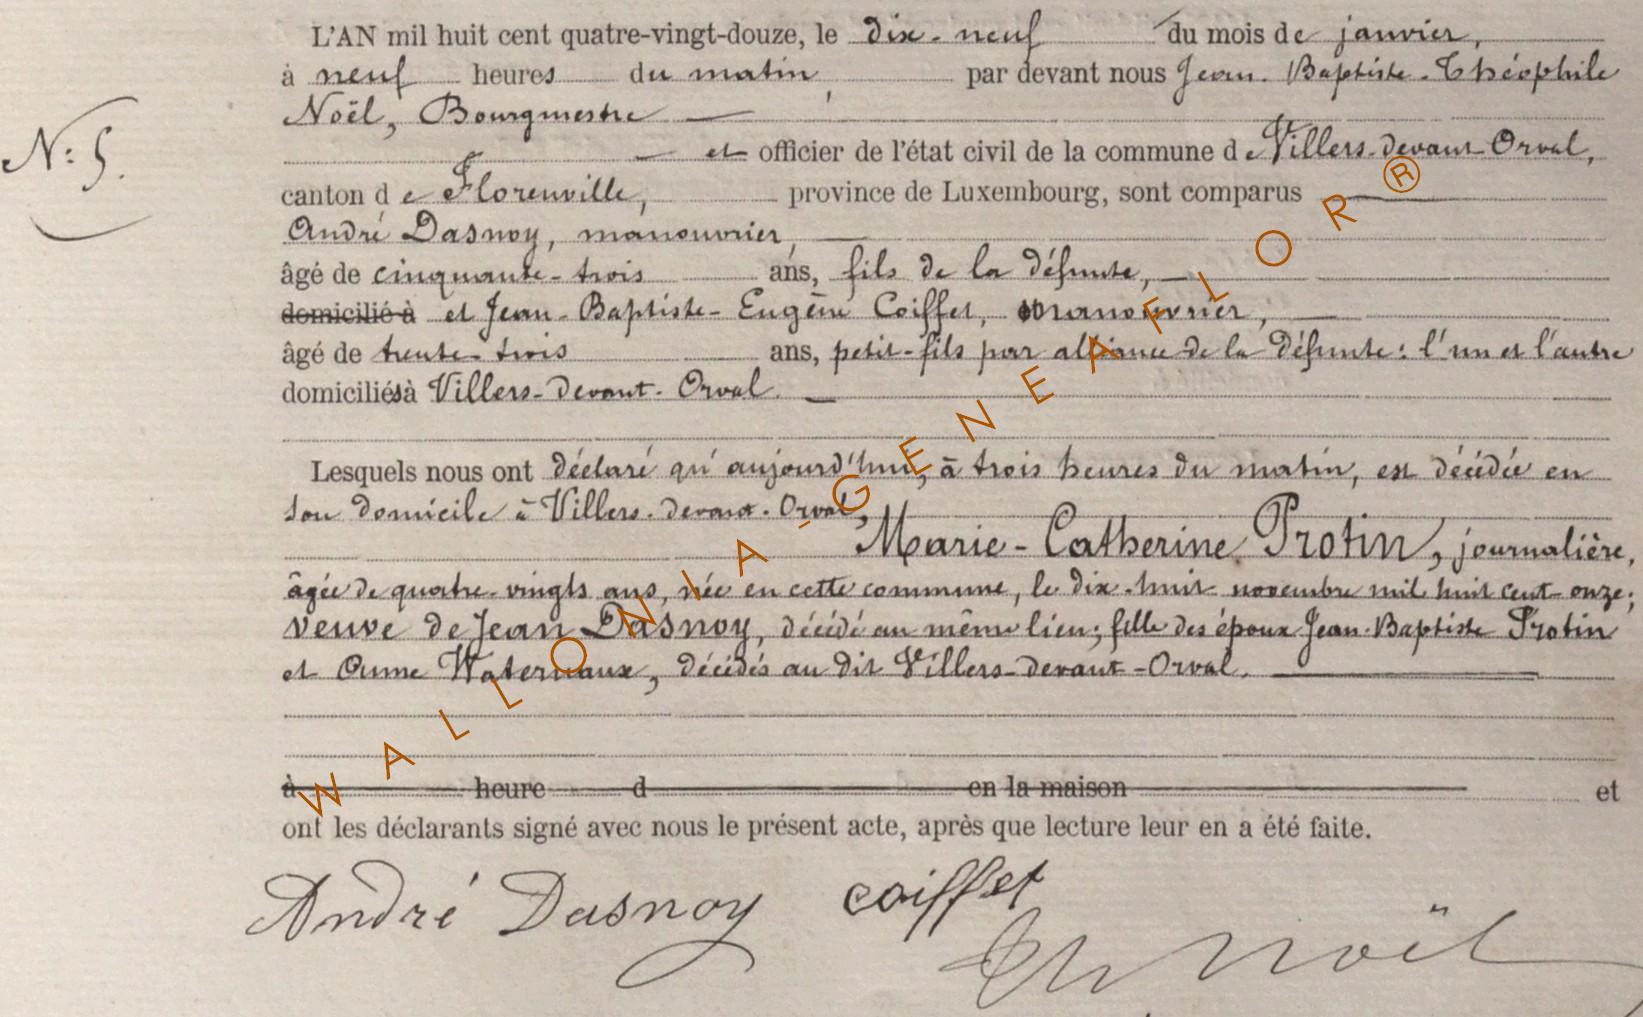 L'AN mil huit cent quatre-vingt-douze, le dix-neuf du mois de janvier,
à neuf heures du matin, par devant nous Jean-Baptiste-Théophile
Noël, Bourgmestre
N: 5.
et officier de l'état civil de la commune de Villers-devant-Orval,
canton de Florenville, province de Luxembourg, sont comparus
André Dasnoy, manouvrier,
âgé de cinquante-trois ans, fils de la défunte,
domicilié à et Jean-Baptiste-Eugène Coiffet, manouvrier,
âgé de trente-trois ans, petit-fils par alliance de la défunte: l'un et l'autre
domiciliés à Villers-devant-Orval.
Lesquels nous ont déclaré qu'aujourd'hui, à trois heures du matin, est décédée en
son domicile à Villers-devant-Orval,
Marie-Catherine Protin, journalière,
âgée de quatre-vingts ans, née en cette commune, le dix-huit novembre mil huit cent-onze;
veuve de Jean Dasnoy, décédé au même lieu; fille des époux Jean-Baptiste Protin
et Anne Waternaux, décédés au dit Villers-devant-Orval.
à heure d en la maison et
ont les déclarants signé avec nous le présent acte, après que lecture leur en a été faite.
André Dasnoy coiffet
Th Noël
WALLONIA-GENEAFLOR®